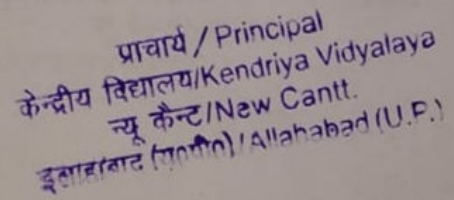 प्राचार्य / Principal
केन्द्रीय विद्यालय/Kendriya Vidyalaya
न्यू कैन्ट/New Cantt.
इलाहाबाद (यू०पी०)/Allahabad (U.P.)